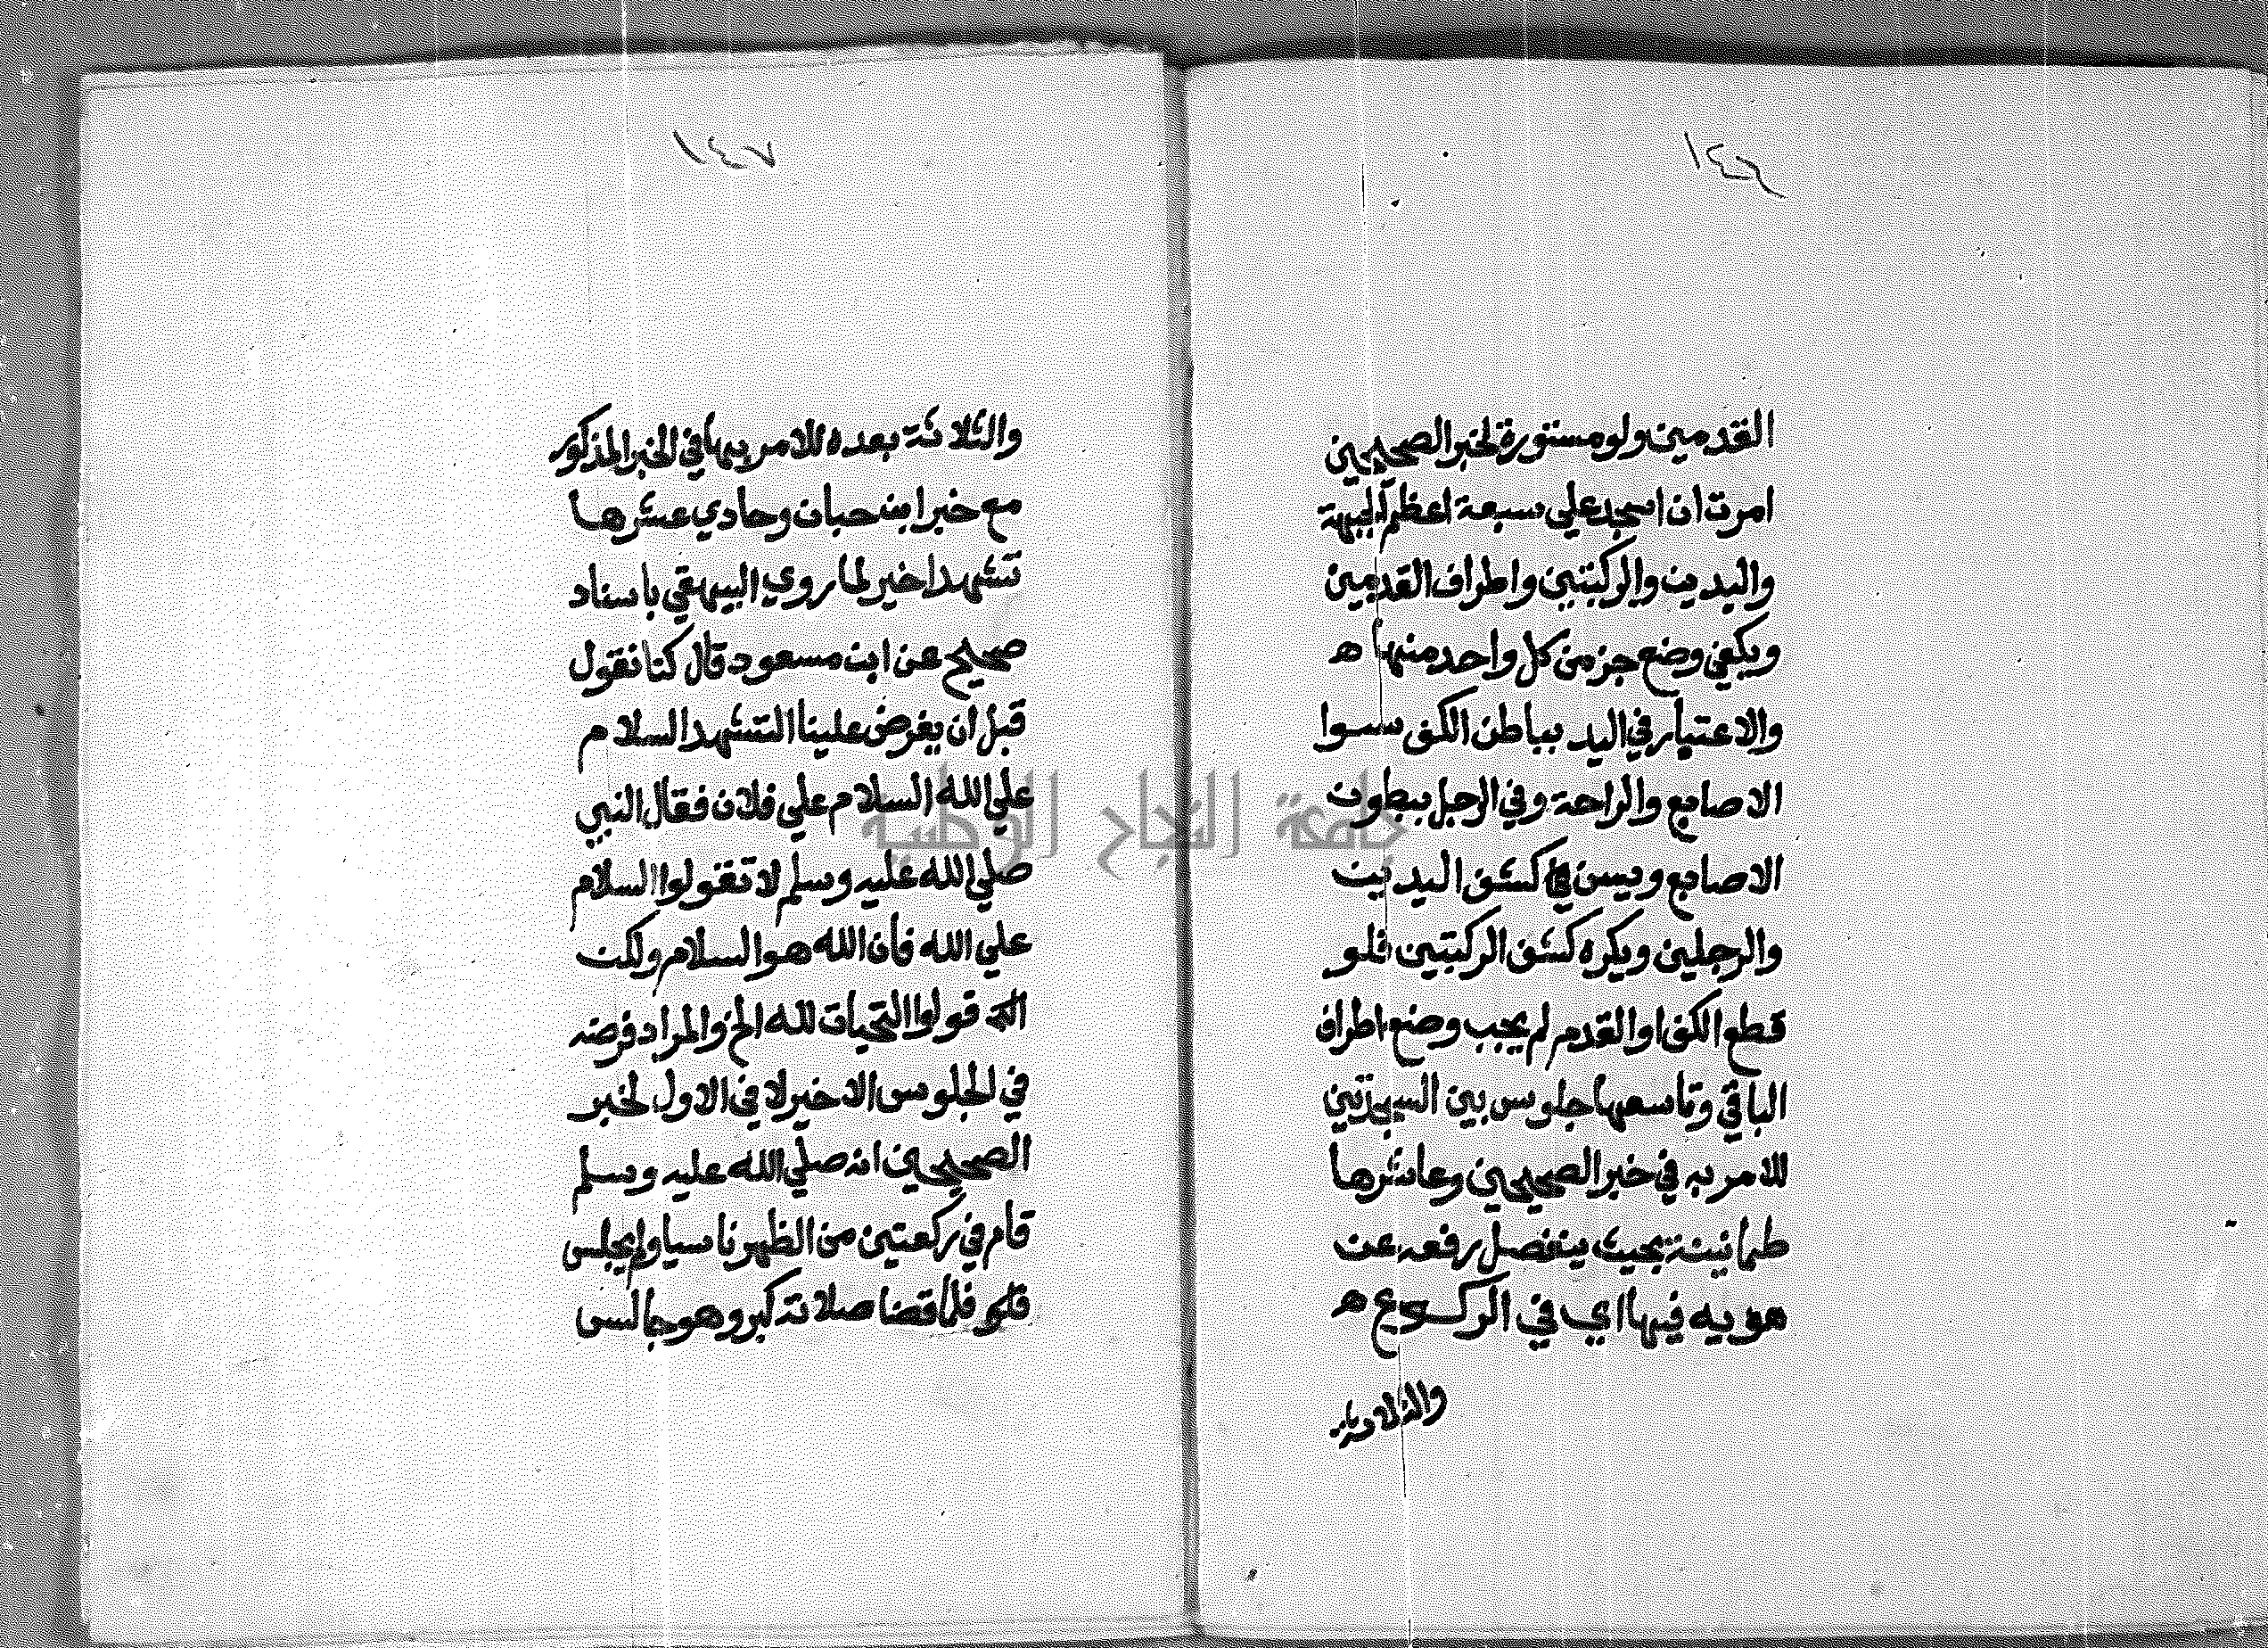 القدمين ولو مستورة لخبر الصحيحين
امرت ان اسجد علي سبعة اعظم الجبهة
واليدين والركبتين واطراف القدمين
ويكفي وضع جز من كل واحد منها ه
والاعتبار في اليد بباطن الكف سوا
الاصابع والراحة وفي الرجل ببطون
الاصابع ويسن كشف اليدين
والرجلين ويكره كشف الركبتين فلو
قطع الكف او القدم لم يجب وضع اطراف
الباقي وتاسعها جلوس بين السجدتين
للامر به في خبر الصحيحين وعاشرها
طمانينة بحيث ينفصل رفعه عن
هويه فيها اي في الركوع ه
١٤٧
والثلاثة بعده للامر بها في الخبر المذكور
مع خبر ابن حبان وحادي عشرها
تشهد اخير لما روي البيهقي باسناد
صحيح عن ابن مسعود قال كنا نقول
قبل ان يفرض علينا التشهد السلام
علي الله السلام علي فلان فقال النبي
صلي الله عليه وسلم لا تقولوا السلام
علي الله فان الله هو السلام ولكن
قولوا التحيات لله الخ والمراد فرضه
في الجلوس الاخير لا في الاول لخبر
الصحيحين انه صلي الله عليه وسلم
قام في ركعتين من الظهر ناسيا ولم يجلس
فلما قضا صلاته كبر وهو جالس
جامعة النجاح الوطنية